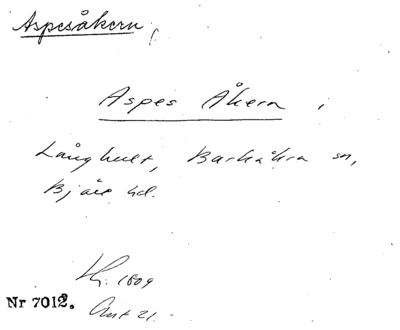 Aspesåkern,
Aspes Åkern i
Långhult, Barkåkra sn,
Bjäre hd.
1809
Nr 7012.
Akt 21.